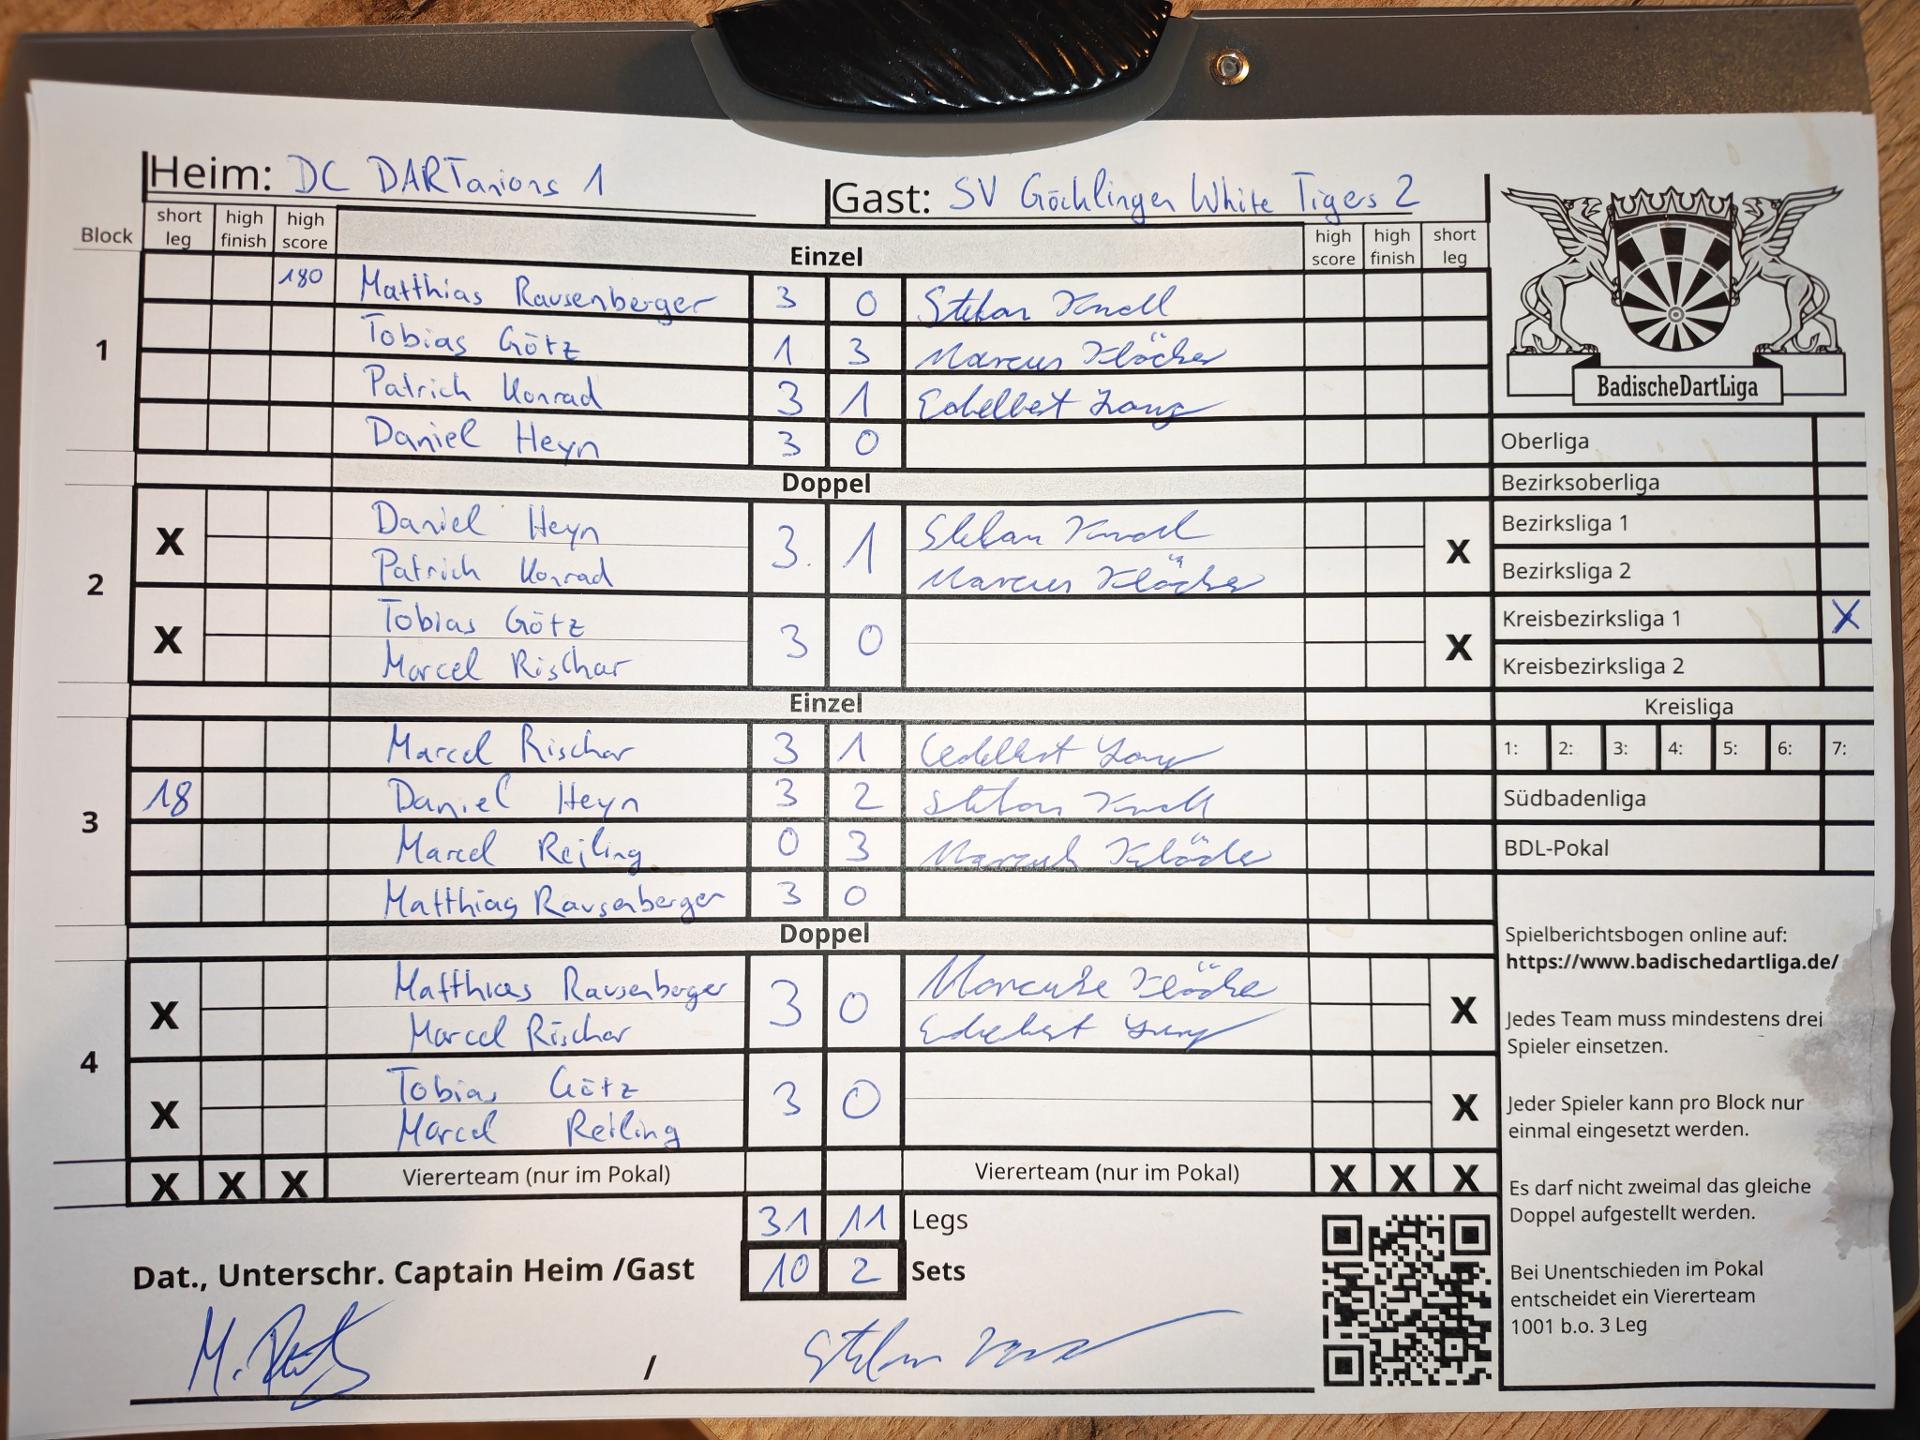 Heim: DC DARTanions 1
Gast: SV Göcklingen White Tigers 2
Block short leg high finish high score Einzel high score high finish short leg
1
180 Matthias Rausenberger 3 0 Stefan Knoll
Tobias Götz 1 3 Marcus Klöcker
Patrick Konrad 3 1 Edelbert Lang
Daniel Heyn 3 0
Doppel
2
X Daniel Heyn 3 1 Stefan Knoll X
Patrick Konrad Marcus Klöcker
X Tobias Götz 3 0 X
Marcel Rischar
Einzel
3
Marcel Rischar 3 1 Edelbert Lang
18 Daniel Heyn 3 2 Stefan Knoll
Marcel Reiling 0 3 Marcus Klöcker
Matthias Rausenberger 3 0
Doppel
4
X Matthias Rausenberger 3 0 Marcus Klöcker X
Marcel Rischar Edelbert Lang
X Tobias Götz 3 0 X
Marcel Reiling
X X X Viererteam (nur im Pokal) Viererteam (nur im Pokal) X X X
31 11 Legs
10 2 Sets
Dat., Unterschr. Captain Heim /Gast
M. / Stefan
BadischeDartLiga
Oberliga
Bezirksoberliga
Bezirksliga 1
Bezirksliga 2
Kreisbezirksliga 1 X
Kreisbezirksliga 2
Kreisliga
1: 2: 3: 4: 5: 6: 7:
Südbadenliga
BDL-Pokal
Spielberichtsbogen online auf:
https://www.badischedartliga.de/
Jedes Team muss mindestens drei
Spieler einsetzen.
Jeder Spieler kann pro Block nur
einmal eingesetzt werden.
Es darf nicht zweimal das gleiche
Doppel aufgestellt werden.
Bei Unentschieden im Pokal
entscheidet ein Viererteam
1001 b.o. 3 Leg